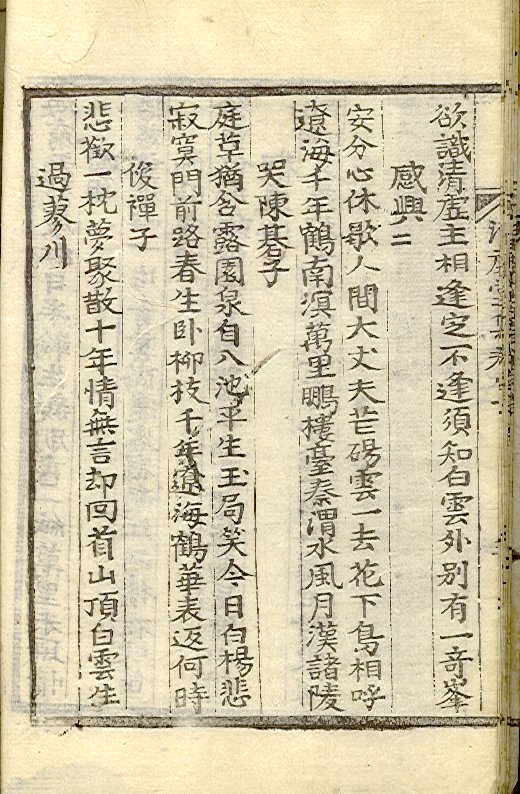 欲識清虛主相逢定不逢須知白雲外別有一奇峯
感興二
安分心休歇人間大丈夫芒碭雲一去花下鳥相呼
遼海千年鶴南溟萬里鵬樓臺秦渭水風月漢諸陵
哭陳碁子
庭草猶含露園泉自入池平生玉局笑今日白楊悲
寂寞門前路春生臥柳枝千年遼海鶴華表返何時
俊禪子
悲歡一枕夢聚散十年情無言却回首山頂白雲生
過蓼川